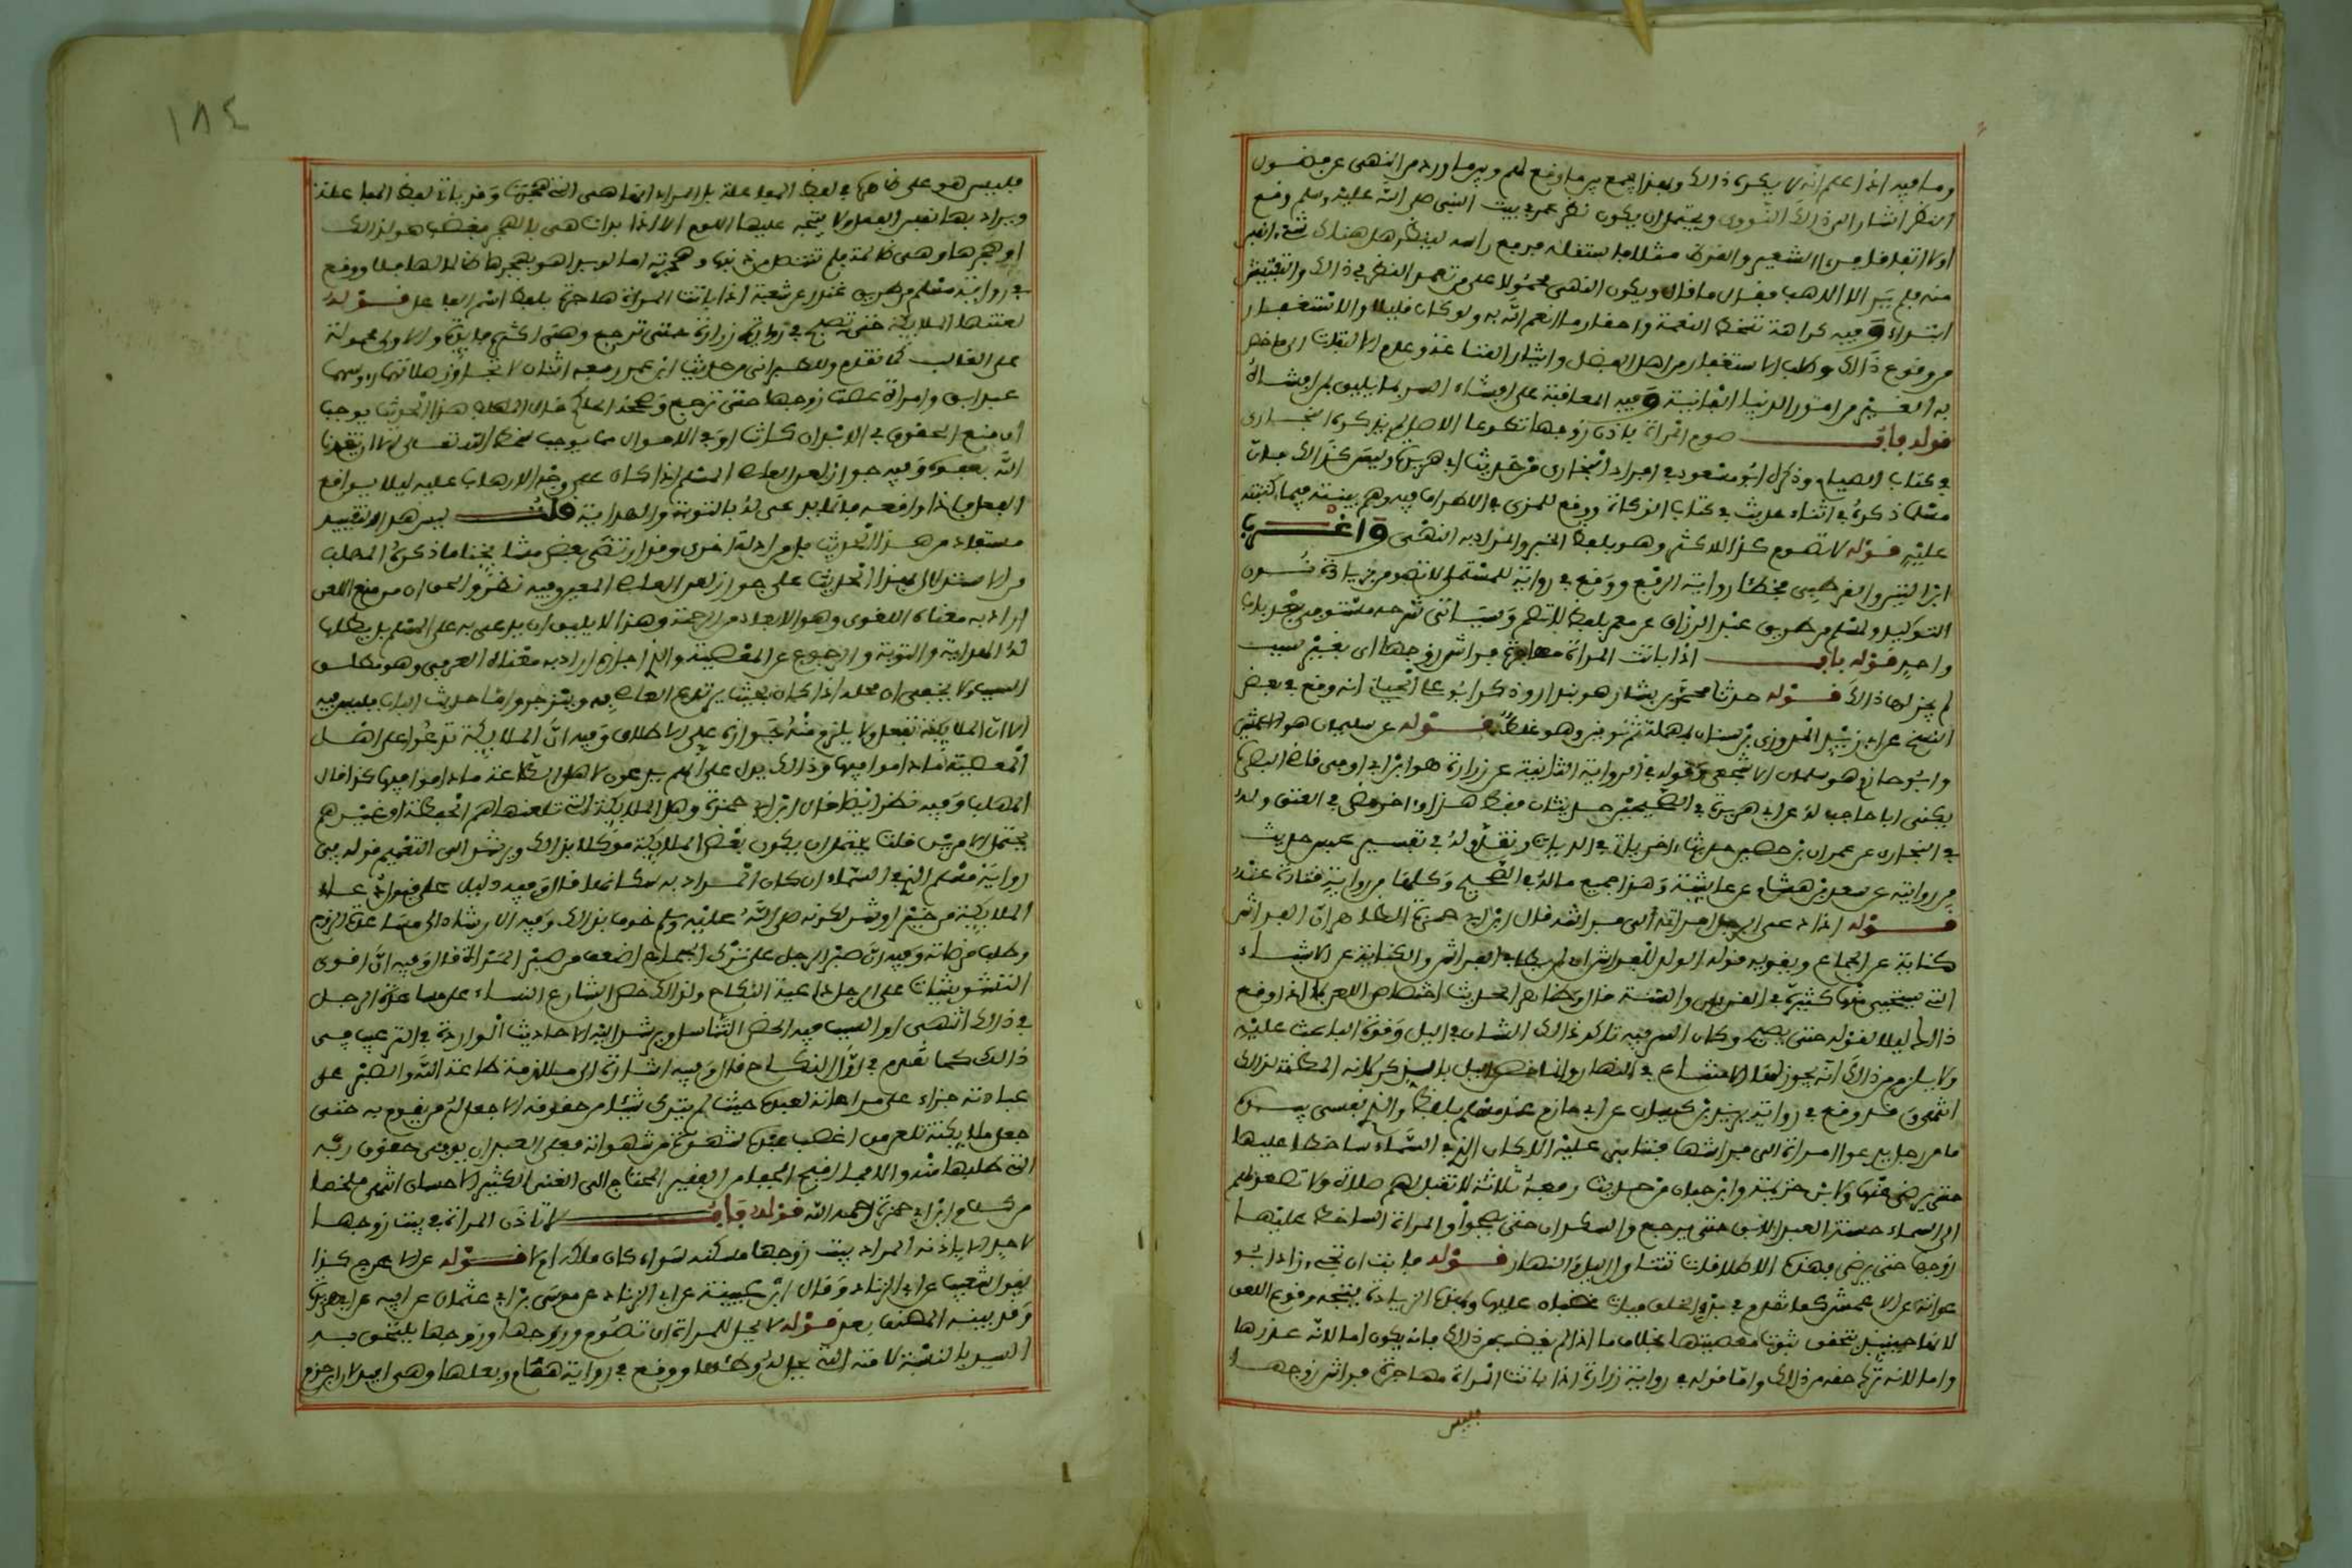 وما فيه اذا علم انه لا يكره ذلك وبهذا يجمع بين ما وقع لهم وبين ما ورد من النهي عن فضول
النظر اشار الى ذلك النووي ويحتمل ان يكون نظر عمر في بيت النبي صلى الله عليه وسلم وقع
اولا اتفاقا فرءا الشعير والقرظ مثلا فاستقله فرفع راسه لينظر هل هناك شيء انفس
منه فلم ير الا الاهب فقال ما قال ويكون النهي محمولا على من تعمد النظر في ذلك والتفتيش
ابتداء وفيه كراهة سخط النعمة واحتقار ما انعم الله به ولو كان قليلا والاستغفار
من وقوع ذلك وطلب الاستغفار من اهل الفضل وايثار القناعة وعدم الالتفات الى ما خص
به الغير من امور الدنيا الفانية وفيه المعاقبة على افشاء السر بما يليق بمن افشاه
قوله باب صوم المراة باذن زوجها تطوعا الاصل لم يذكره البخاري
في كتاب الصيام وذكره ابو مسعود في افراد البخاري من حديث ابي هريرة وليس كذلك فان
مسلما ذكره في اثناء حديث في كتاب الزكاة ووقع للمزي في الاطراف فيه وهم بينته فيما كتبته
عليه قوله لا تصوم كذا للاكثر وهو بلفظ الخبر والمراد به النهي واغرب
ابن التين والقرطبي فخطئا رواية الرفع ووقع في رواية للمستملي لا تصومن بزيادة نون
التوكيد ولمسلم من طريق عبد الرزاق عن معمر بلفظ لا تصم وسياتي شرحه مستوفى بعد باب
واحد قوله باب اذا باتت المراة مهاجرة فراش زوجها اي بغير سبب
لم يجز لها ذلك قوله حدثنا محمد بن بشار هو بندار وذكر ابو علي الجياني انه وقع في بعض
النسخ عن ابي زيد المروزي بن سنان بمهملة ثم نونين وهو غلط قوله عن سليمان هو الاعمش
وابو حازم هو سلمان الاشجعي وقوله في الرواية الثانية عن زرارة هو ابن ابي اوفى قاضي البصرة
يكنى ابا حاجب له عن ابي هريرة في الصحيحين حديثان فقط هذا واخر مضى في العتق وله
في البخاري عن عمران بن حصين حديث اخر ياتي في الديات وتقدم له في تفسير عبس حديث
من روايته عن سعد بن هشام عن عايشة وهذا جميع ماله في الصحيح وكلها من رواية قتادة عنه
قوله اذا دعى الرجل امراته الى فراشه قال ابن ابي جمرة الظاهر ان الفراش
كناية عن الجماع ويقويه قوله الولد للفراش اي لمن يطا في الفراش والكناية عن الاشياء
التي يستحيى منها كثيرة في القران والسنة قال وظاهر الحديث اختصاص اللعن بما اذا وقع
ذلك ليلا لقوله حتى تصبح وكان السر فيه تاكد ذلك الشان في الليل وقوة الباعث عليه
ولا يلزم من ذلك انه يجوز لها الامتناع في النهار وانما خص الليل بالذكر لانه المظنة لذلك
انتهى وقد وقع في رواية يزيد بن كيسان عن ابي حازم عند مسلم بلفظ والذي نفسي بيده
ما من رجل يدعوا امراته الى فراشها فتابى عليه الا كان الذي في السماء ساخطا عليها
حتى يرضى عنها ولابن خزيمة وابن حبان من حديث رفعه ثلاثة لا تقبل لهم صلاة ولا تصعد لهم
الى السماء حسنة العبد الابق حتى يرجع والسكران حتى يصحوا والمراة الساخط عليها
زوجها حتى يرضى فهذه الاطلاقات تتناول الليل والنهار قوله فابت ان تجيء زاد ابو
عوانة عن الاعمش كما تقدم في بدء الخلق فبات غضبان عليها وبهذه الزيادة يتجه وقوع اللعن
لانها حينيذ يتحقق ثبوت معصيتها بخلاف ما اذا لم يغضب من ذلك فانه يكون اما لانه عذرها
واما لانه ترك حقه من ذلك واما قوله في رواية زرارة اذا باتت المراة مهاجرة فراش زوجها
فليس
١٨٤
فليس هو على ظاهره في لفظ المفاعلة بل المراد انها هي التي هجرت وقد ياتي لفظ المفاعلة
ويراد بها نفس الفعل ولا يتجه عليها اللوم الا اذا بدات هي بالهجر فغضب هو لذلك
او هجرها وهي ظالمة فلم تتنصل من ذنبها وهجرته اما لو بدا هو بهجرها ظالما لها فلا ووقع
في رواية مسلم من طريق غندر عن شعبة اذا باتت المراة هاجرة بلفظ اسم الفاعل قوله
لعنتها الملايكة حتى تصبح في رواية زرارة حتى ترجع وهي اكثر فايدة والاولى محمولة
على الغالب كما تقدم وللطبراني من حديث ابن عمر رفعه اثنان لا تجاوز صلاتهما رءوسهما
عبد ابق وامراة عصت زوجها حتى ترجع وصححه الحاكم قال المهلب هذا الحديث يوجب
ان منع الحقوق في الابدان كانت او في الاموال مما يوجب سخط الله تعالى الا ان يتغمدها
الله بعفوه وفيه جواز لعن العاصي المسلم اذا كان على وجه الارهاب عليه ليلا يواقع
الفعل فاذا واقعه فانما يدعى له بالتوبة والهداية قلت ليس هذا التقييد
مستفاد من هذا الحديث بل من ادلة اخرى وقد ارتضى بعض مشايخنا ما ذكره المهلب
من الاستدلال بهذا الحديث على جواز لعن العاصي المعين وفيه نظر والحق ان من منع اللعن
اراد به معناه اللغوي وهو الابعاد من الرحمة وهذا لا يليق ان يدعى به على المسلم بل يطلب
له الهداية والتوبة والرجوع عن المعصية والذي اجازه اراد به معناه العرفي وهو مطلق
السب ولا يخفى ان محله اذا كان بحيث يرتدع العاصي به وينزجر واما حديث الباب فليس فيه
الا ان الملايكة تفعل ولا يلزم منه جوازه على الاطلاق وفيه ان الملايكة تدعوا على اهل
المعصية ما داموا فيها وذلك يدل على انهم يدعون لاهل الطاعة ما داموا فيها كذا قال
المهلب وفيه نظر ايضا قال ابن ابي جمرة وهل الملايكة التي تلعنها هم الحفظة او غيرهم
يحتمل الامرين قلت يحتمل ان يكون بعض الملايكة موكلا بذلك ويرشد الى التعميم قوله في
رواية مسلم الذي في السماء ان كان المراد به سكانها قال وفيه دليل على قبول دعاء
الملايكة من خير او شر لكونه صلى الله عليه وسلم خوف بذلك وفيه الارشاد الى مساعدة الزوج
وطلب مرضاته وفيه ان صبر الرجل على ترك الجماع اضعف من صبر المراة قال وفيه ان اقوى
التشويشات على الرجل داعية النكاح ولذلك حض الشارع النساء على مساعدة الرجل
في ذلك انتهى او السبب فيه الحض على التناسل ويرشد اليه الاحاديث الواردة في الترغيب في
ذلك كما تقدم في اول النكاح قال وفيه اشارة الى ملازمة طاعة الله والصبر على
عبادته جزاء على مراعاته لعبده حيث لم يترك شيئا من حقوقه الا جعل له من يقوم به حتى
جعل ملايكته تلعن من اغضب عبده بمنع شهوة من شهواته فعلى العبد ان يوفي حقوق ربه
التي طلبها منه والا فما اقبح الجفا من الفقير المحتاج الى الغني الكثير الاحسان انتهى ملخصا
من كلام ابن ابي جمرة رحمه الله قوله باب لا تاذن المراة في بيت زوجها
لاحد الا باذنه المراد ببيت زوجها سكنه سواء كان ملكه ام لا قوله عن الاعرج كذا
يقول شعيب عن ابي الزناد وقال ابن عيينة عن ابي الزناد عن موسى بن ابي عثمان عن ابيه عن ابي هريرة
وقد بينه المصنف بعد قوله لا يحل للمراة ان تصوم وزوجها وزوجها يلتحق به
السيد بالنسبة لامته التي يحل له وطئها ووقع في رواية همام وبعلها وهي افيد لان ابن حزم